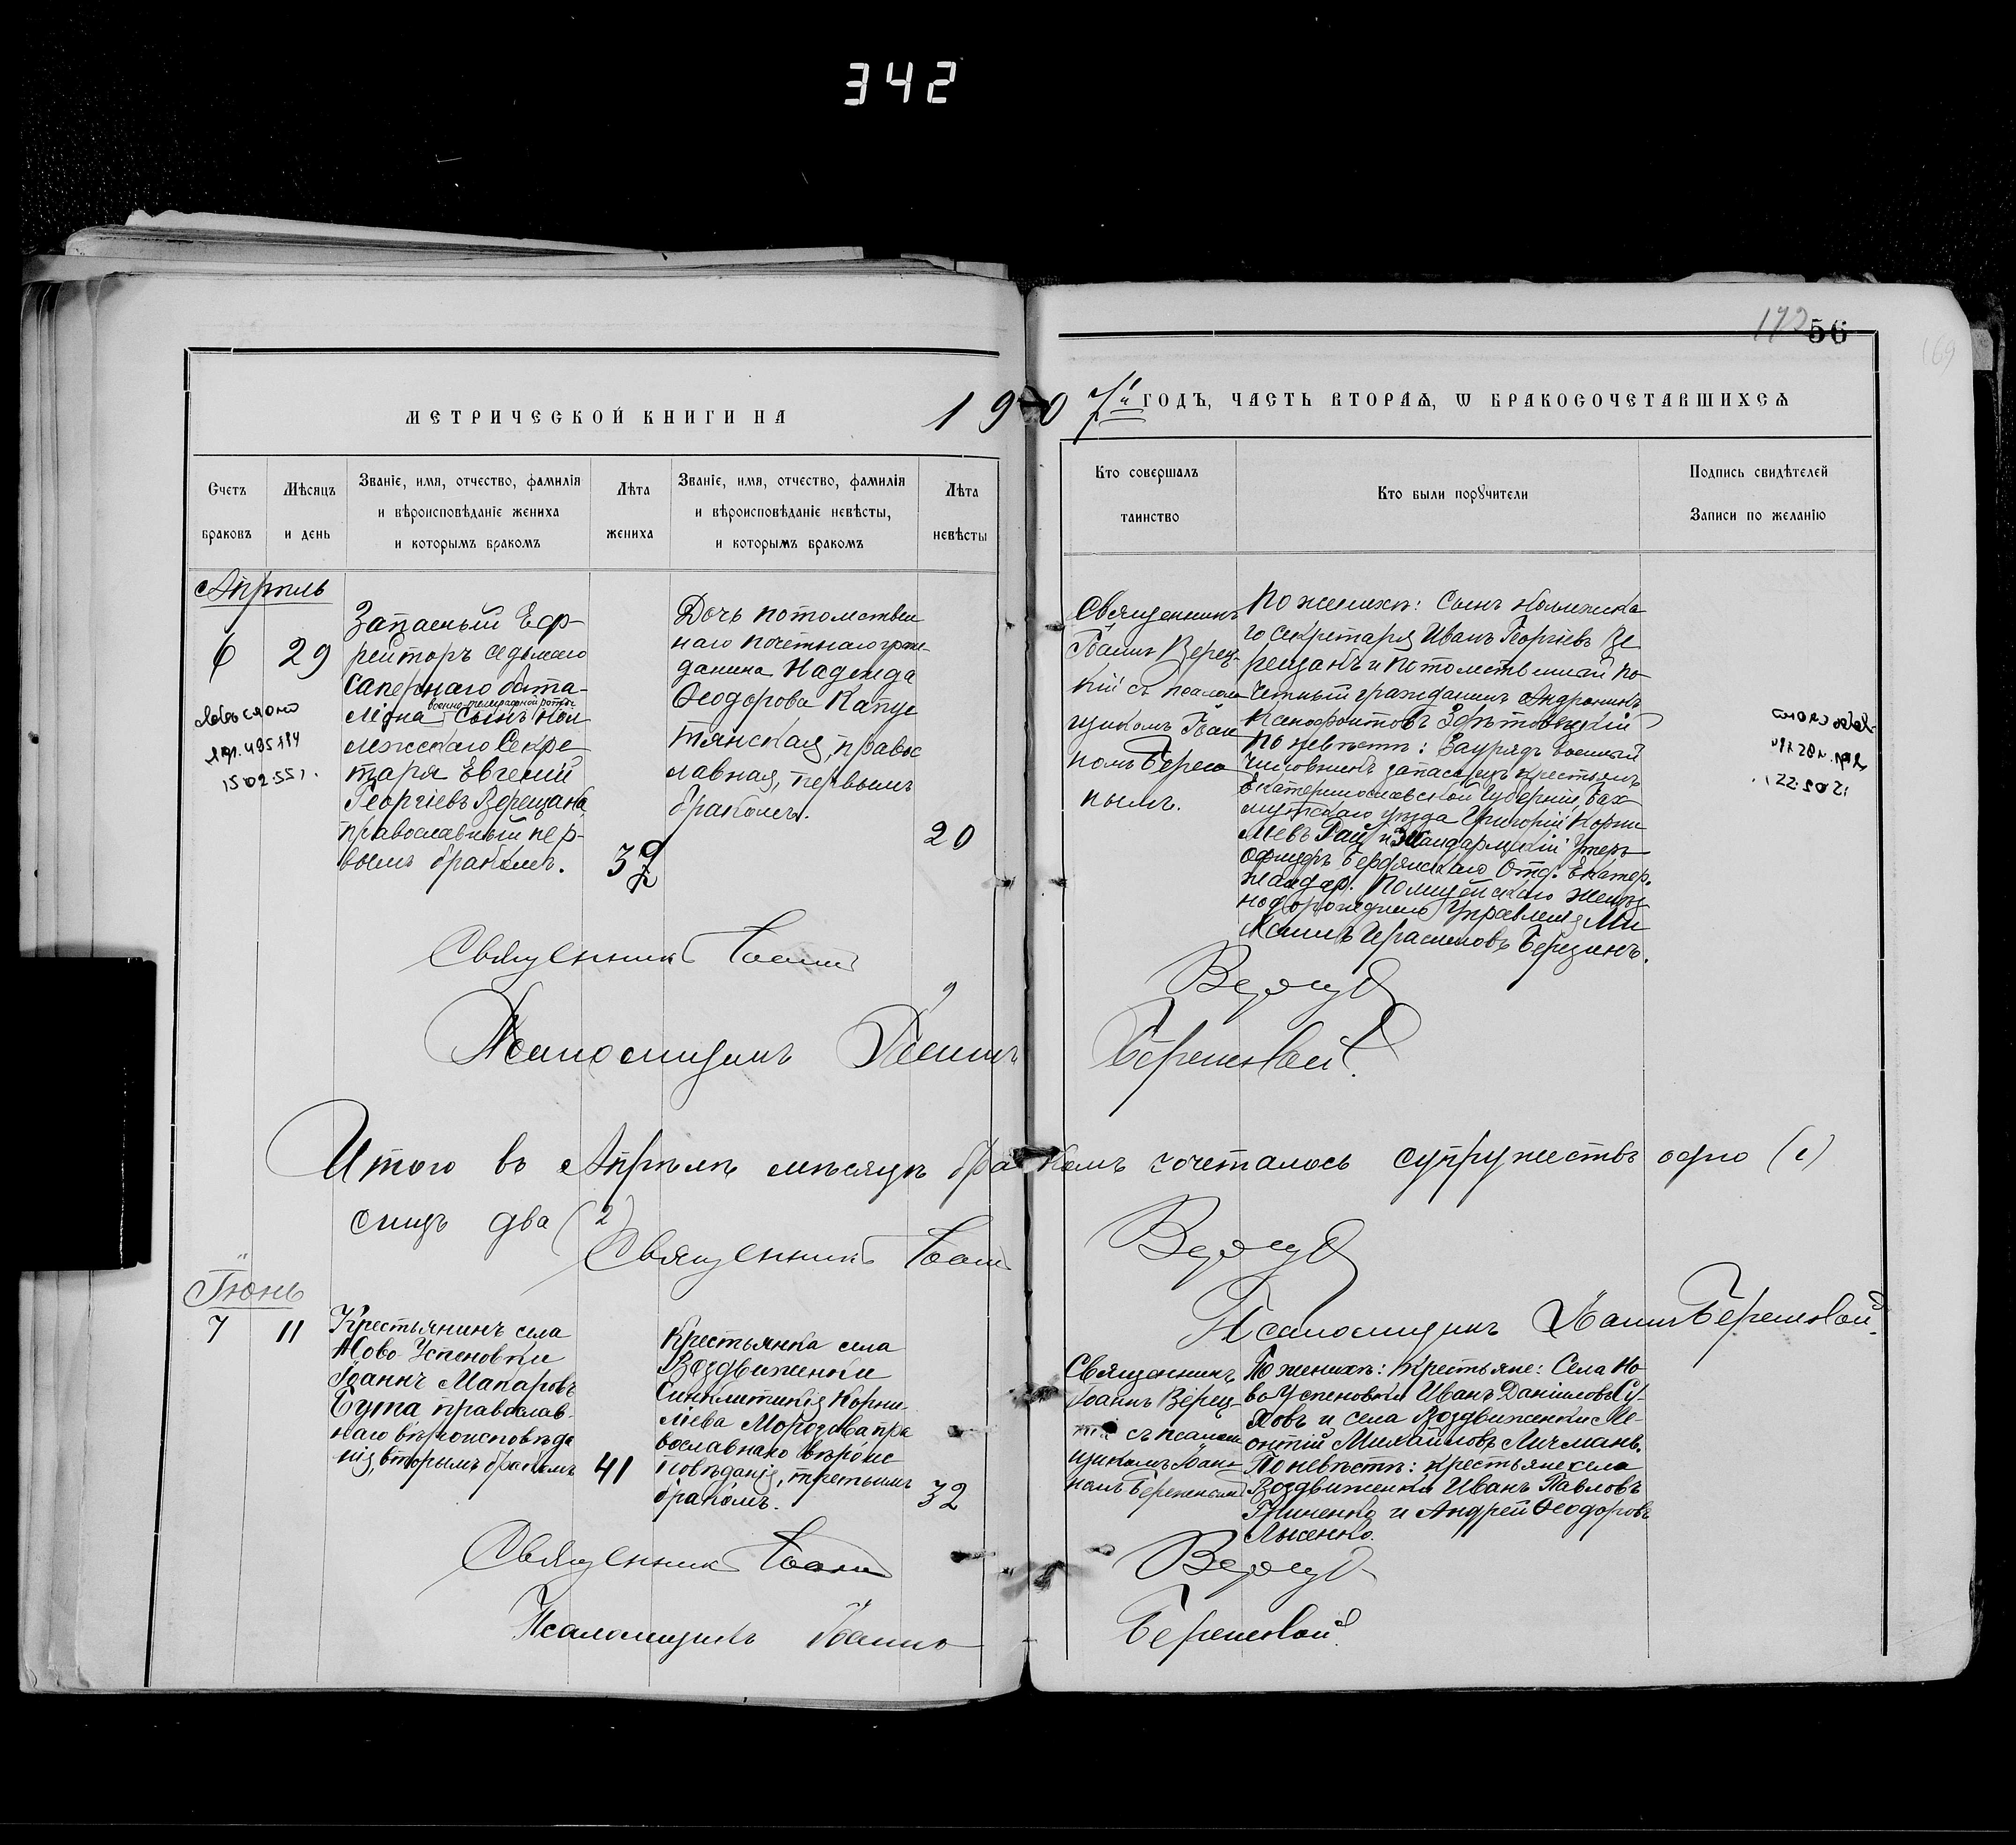 342
172 56
169
МЕТРИЧЕСКОЙ КНИГИ НА 1907й ГОДЪ, ЧАСТЬ ВТОРАѦ, Ѡ БРАКОСОЧЕТАВШИХСѦ
Счетъ браковъ
Мѣсяцъ и день
Званіе, имя, отчество, фамилія
и вѣроисповѣданіе жениха
и которымъ бракомъ
Лѣта жениха
Званіе, имя, отчество, фамилія
и вѣроисповѣданіе невѣсты,
и которымъ бракомъ
Лѣта невѣсты
Кто совершалъ
таинство
Кто были порꙋчители
Подпись свидѣтелей
Записи по желанію
Апрѣль
6
29
15.02.55 г.
Запасный Еф-
рейторъ седьмаго
сапернаго бата-
военно-телеграфной роты
ліона сынъ Кол
лежскаго Секре
таря Евгеній
Георгіевъ Верещака,
православный пер-
вымъ бракомъ.
32
Дочь потомствен
наго почетнаго граж-
данина Надежда
Ѳеодорова Капус
тянская, правос
лавная, первымъ
бракомъ.
20
Священникъ
Іоаннъ Верец-
кій съ псалом
щикомъ Іоан
номъ
По женихѣ: Сынъ Коллежска
го секретаря Иванъ Георгіевъ Ве
рещакъ и потомственный по-
четный гражданинъ Андроникъ
Ксенофонтовъ
По невѣстѣ: Заурядъ военный
чиновникъ запаса изъ крестьянъ
Екатеринославской Губерніи, Бах
мутскаго уѣзда Григорій Корни
ліевъ Рай и Жандармскій Унтеръ
офицеръ Бердянскаго Отд. Екатер.
жандар. Полицейскаго Желѣз
нодорожнаго Управленія Ми
хаилъ Герасимовъ Березинъ.
Священникъ Іоаннъ
Псаломщикъ Іоаннъ
Итого въ Апрѣлѣ мѣсяцѣ бракомъ сочеталось супружествъ одно (1)
лицъ два (2)
Священникъ Іоаннъ
Псаломщикъ Іоаннъ
Іюнь
7
11
Крестьянинъ села
Ново-Успеновки
Іоаннъ Макаровъ
Бута, православ-
наго вѣроисповѣда
нія, вторымъ бракомъ
41
Крестьянка села
Воздвиженки
Синклитикія Корни-
ліева Морозова пра
вославнаго вѣроис
повѣданія, третьимъ
бракомъ.
32
Священникъ
Іоаннъ Верец-
съ псалом
щикомъ Іоан
номъ
По женихѣ: Крестьяне: Села Но
во Успеновки Иванъ Даніиловъ
и села Воздвиженки Ле-
онтій Михайловъ Личманъ.
По невѣстѣ: крестьяне села
Воздвиженки Иванъ Павловъ
и Андрей Ѳеодоровъ
Лысенко.
Священникъ Іоаннъ
Псаломщикъ Іоаннъ